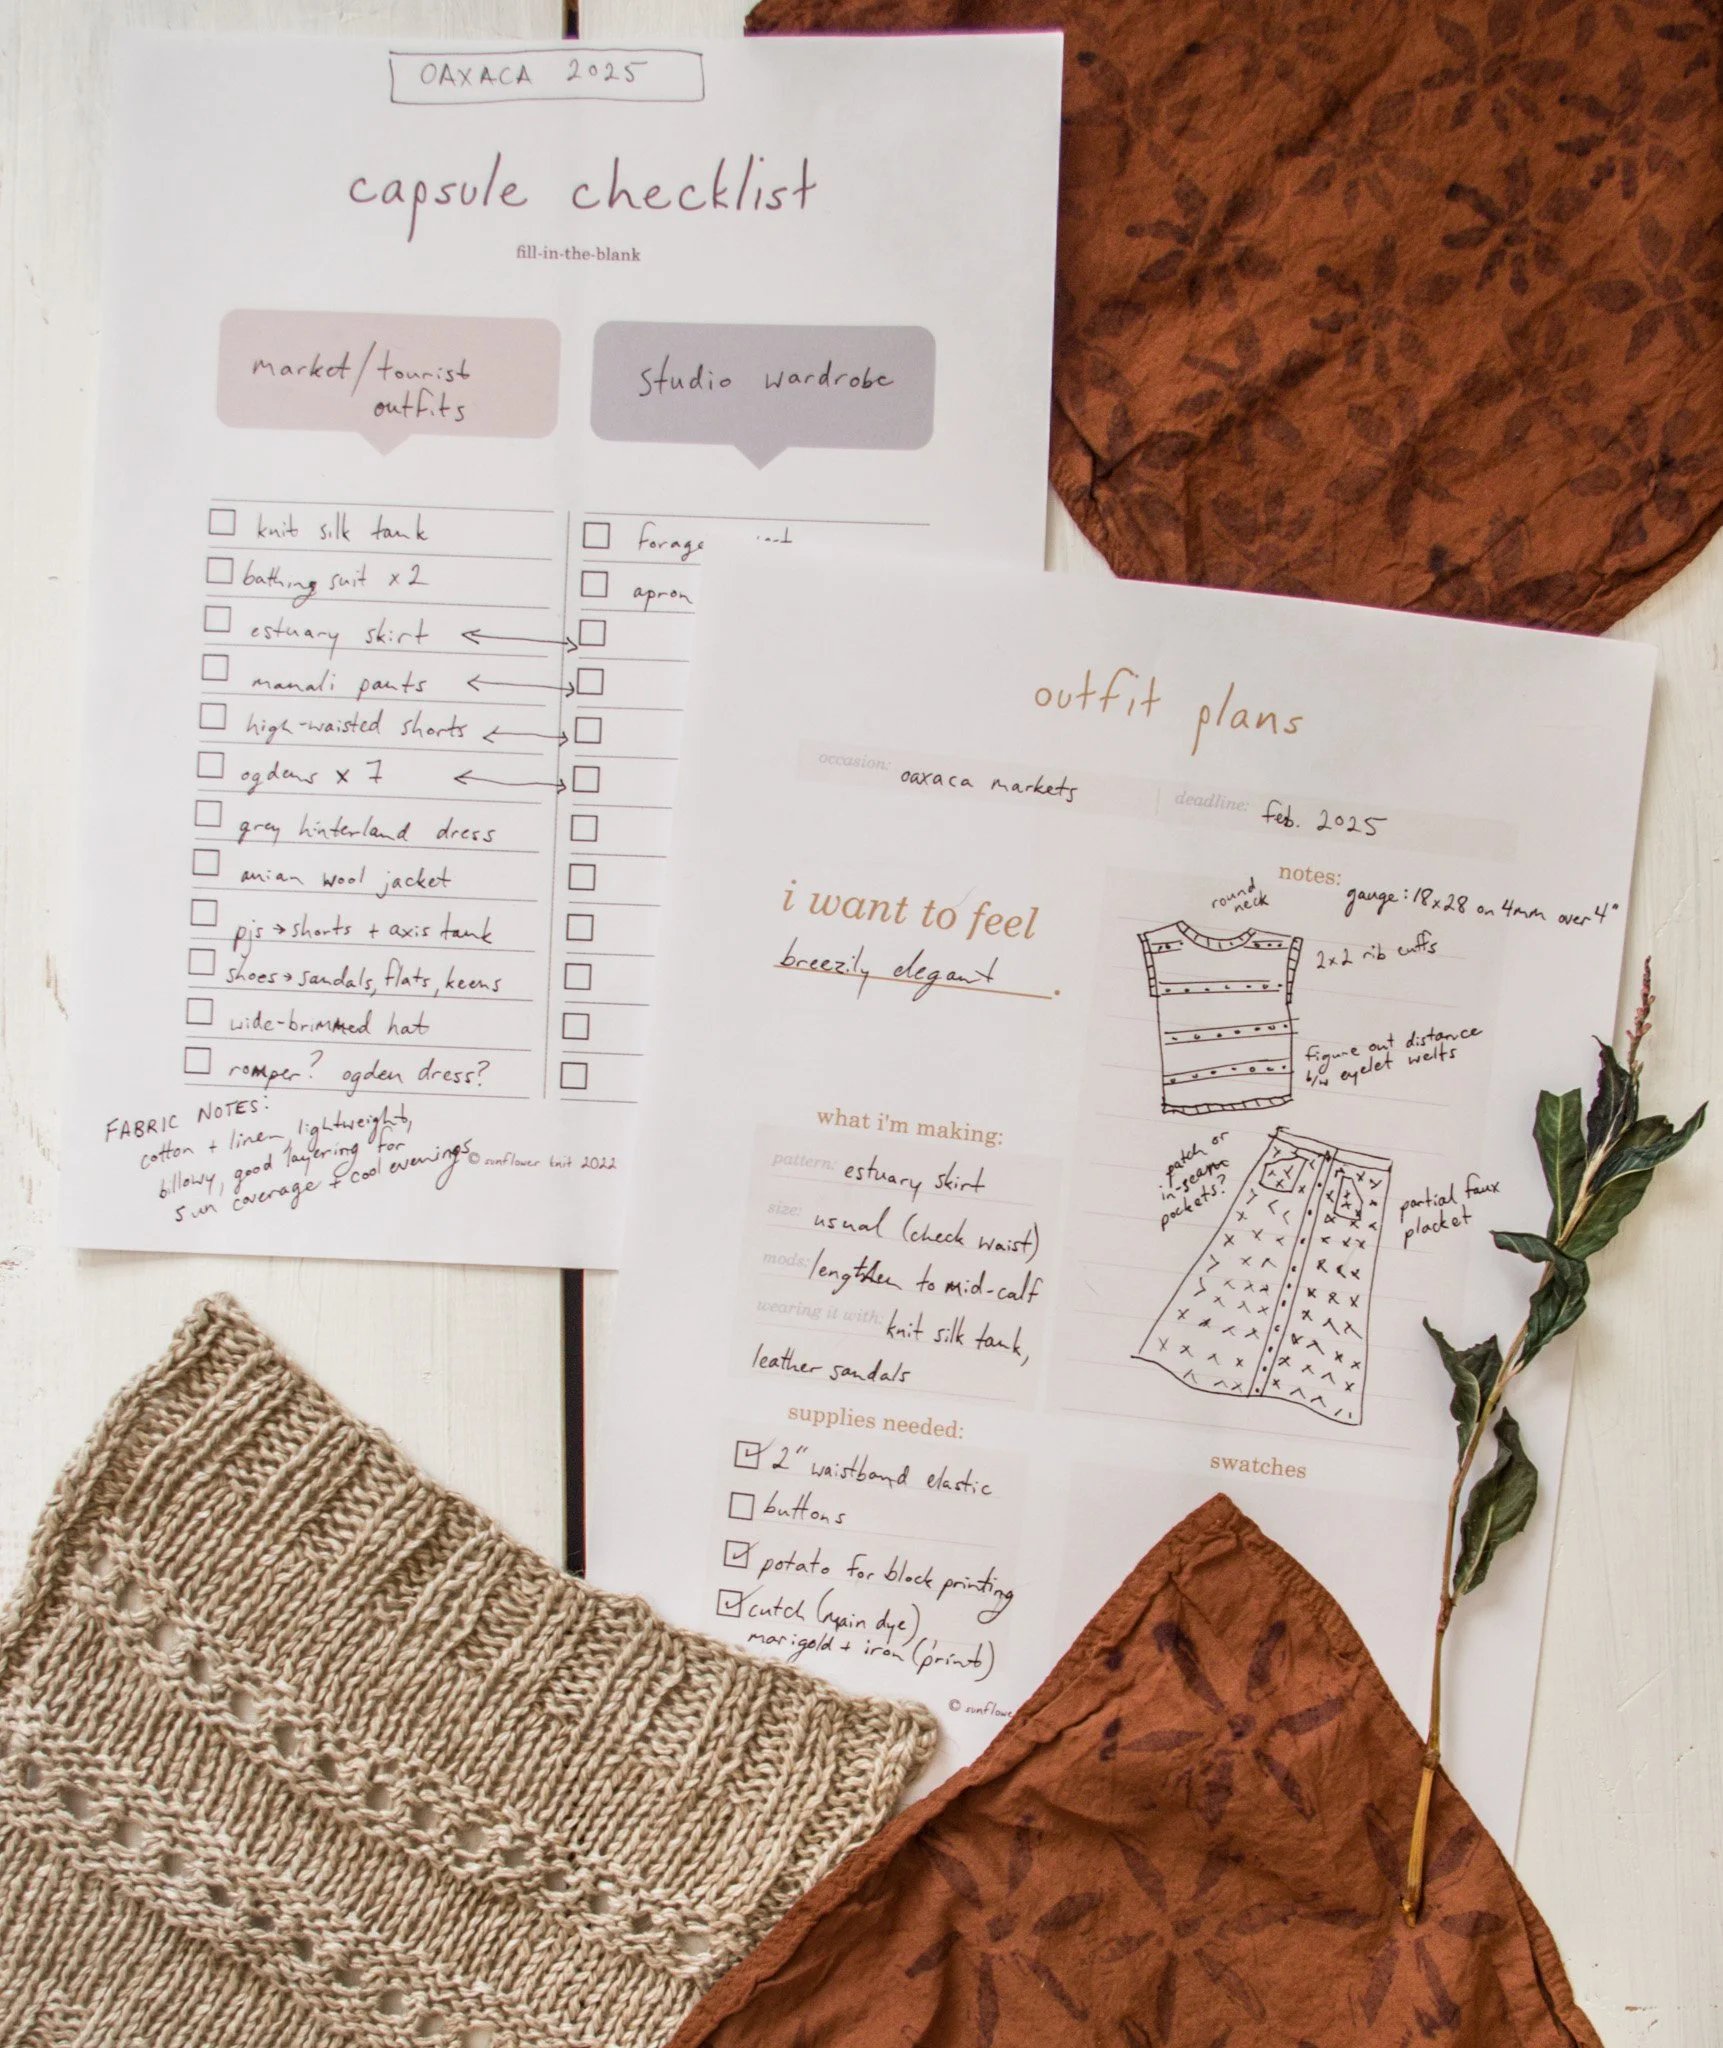 OAXACA 2025
capsule checklist
fill-in-the-blank
market/tourist
outfits
knit silk tank
bathing suit x2
estuary skirt
manali pants
high-waisted shorts
ogdens x 7
grey hinterland dress
anian wool jacket
pjs → shorts + axis tank
shoes → sandals, flats, keens
wide-brimmed hat
romper? ogden dress?
FABRIC NOTES:
cotton + linen, lightweight,
billowy, good layering for
sun coverage + cool evenings
© sunflower knit 2022
studio wardrobe
forage
apron
outfit plans
occasion: oaxaca markets
deadline: feb. 2025
i want to feel
breezily elegant.
what i'm making:
pattern: estuary skirt
size: usual (check waist)
mods: lengthen to mid-calf
wearing it with: knit silk tank,
leather sandals
supplies needed:
2" waistband elastic
buttons
potato for block printing
cutch (main dye)
marigold + iron (print)
© sunflowe
notes:
gauge: 18x28 on 4mm over 4"
round
neck
2x2 rib cuffs
figure out distance
b/w eyelet welts
patch or
in-seam
pockets?
partial faux
placket
swatches